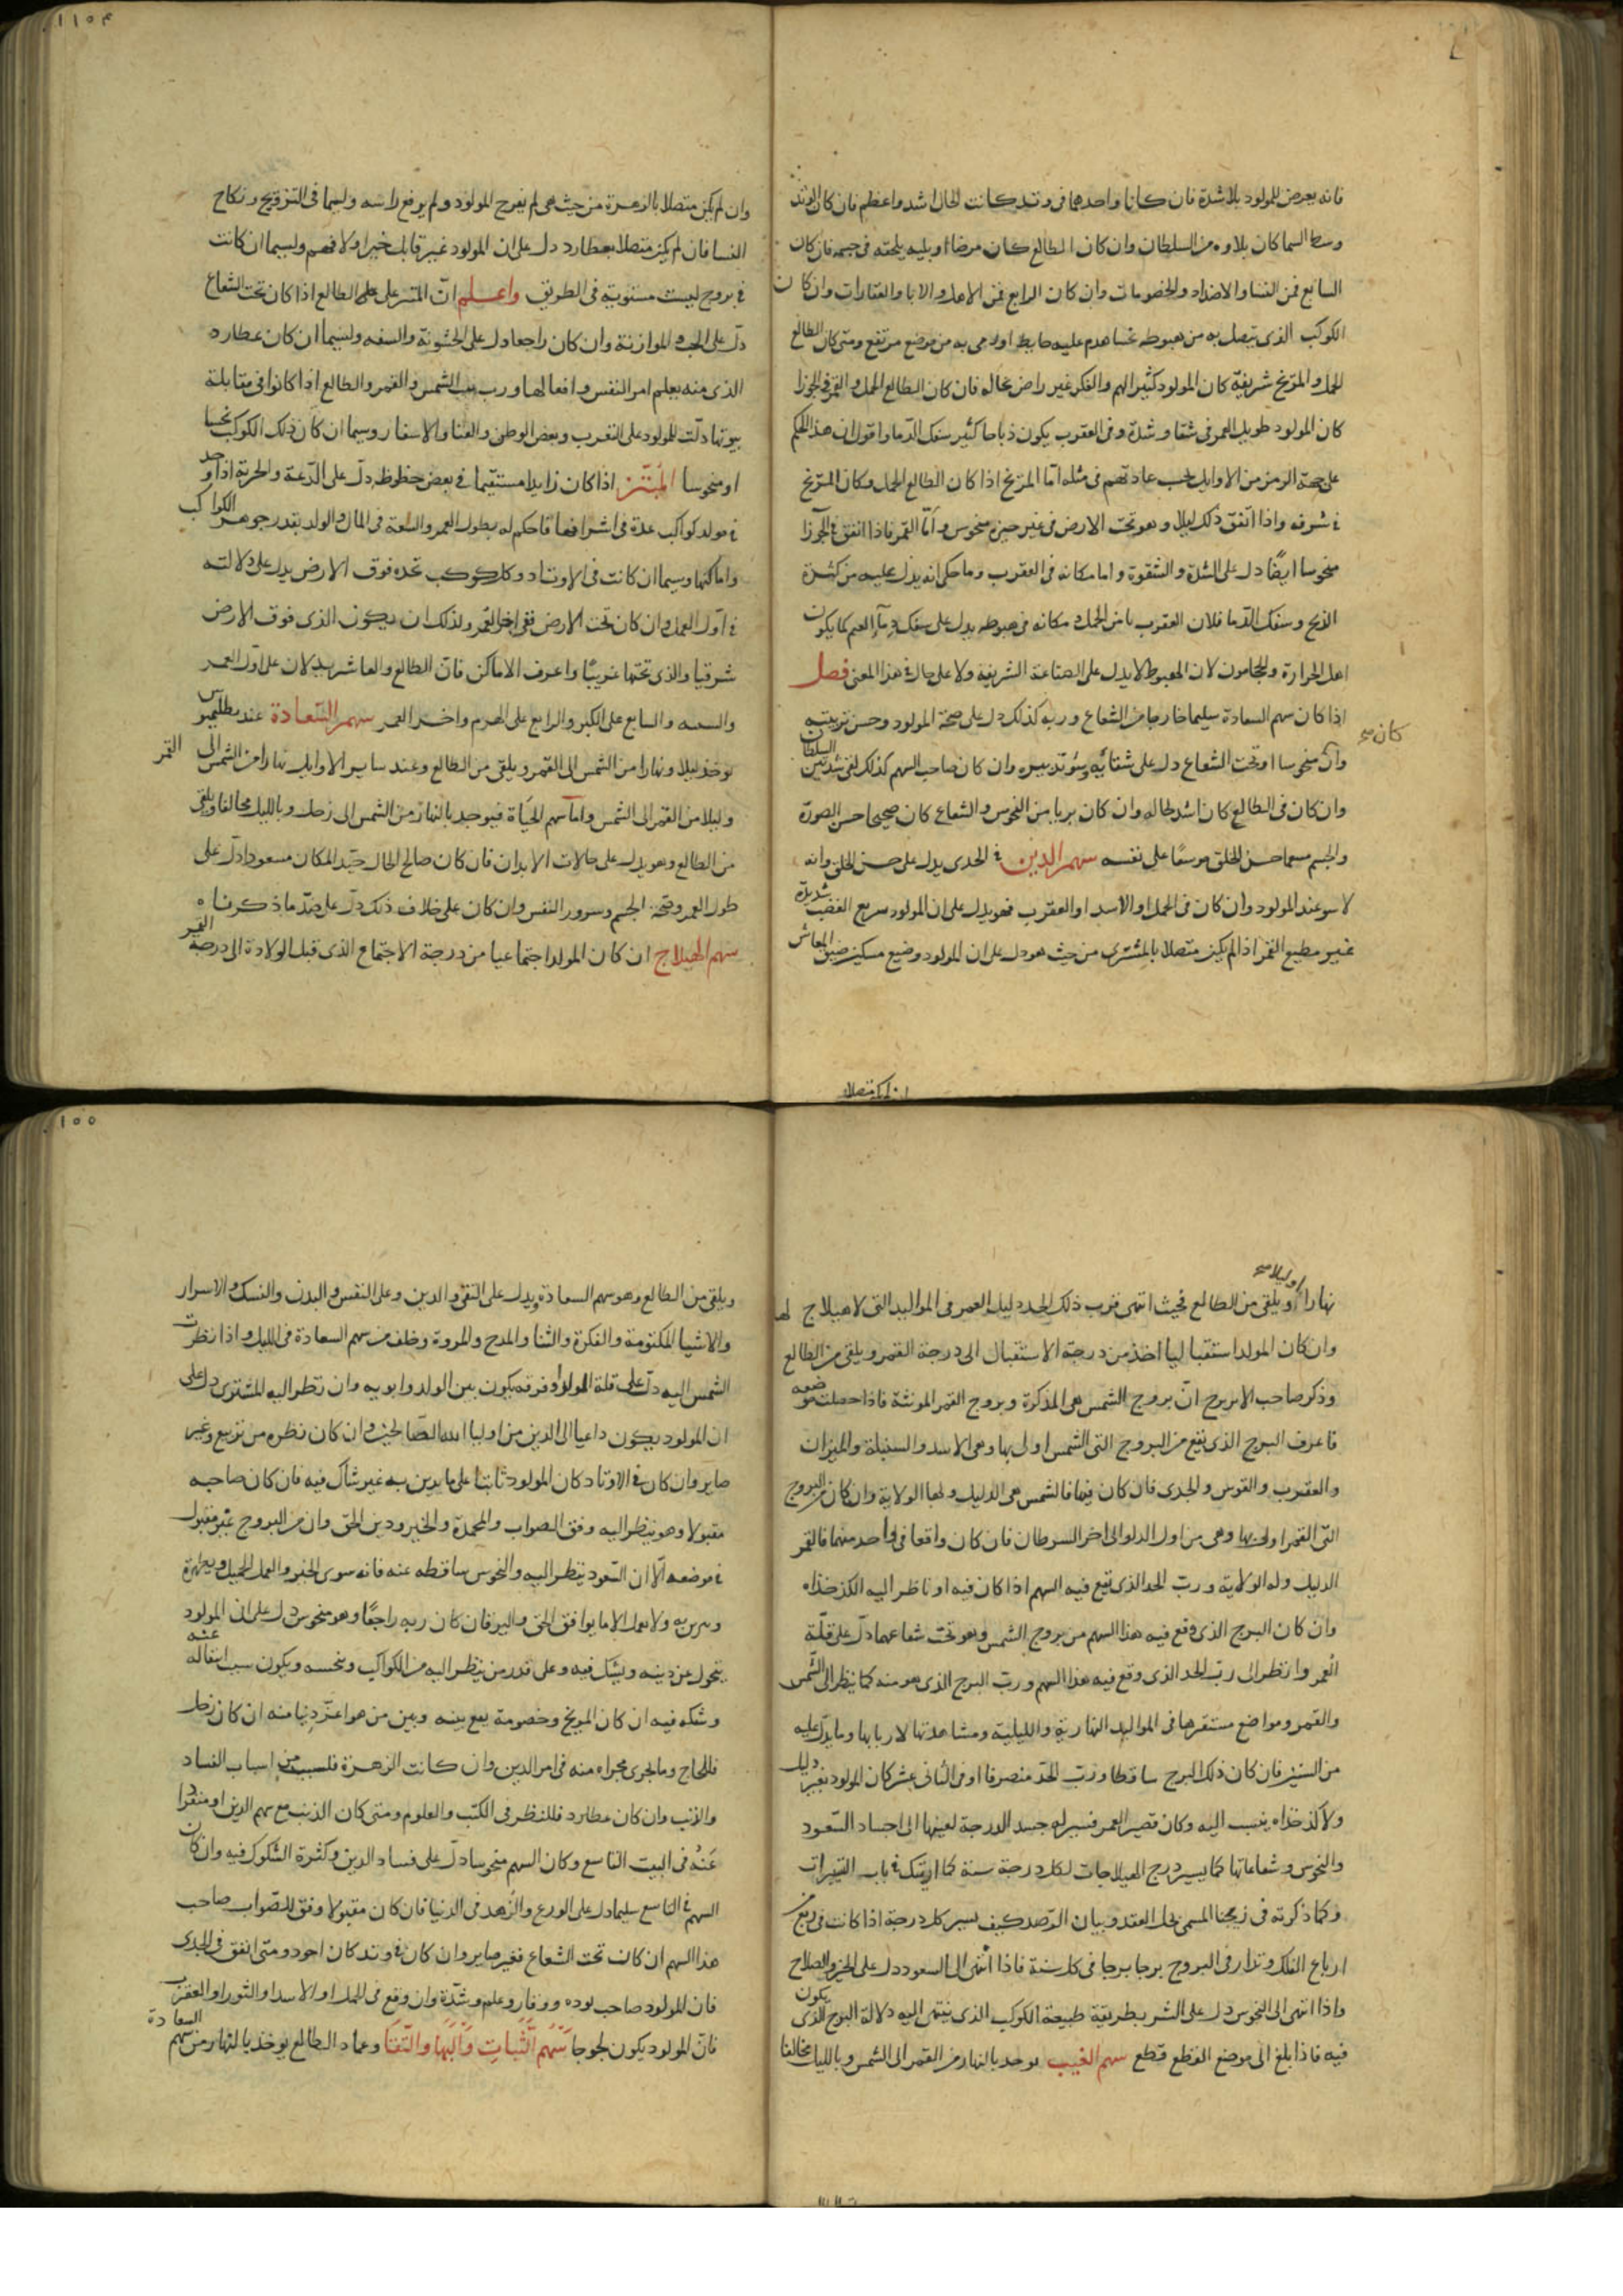 فانه يعرض للمولود بلا شدة فان كانا واحدهما فى وتد كانت الحال اشد واعظم فان كان الوتد
وسط السما كان بلاوه من السلطان وان كان الطالع كان مرضا او بليه يلحقه فى جسمه فان كان
السابع فمن النسا والاضداد والخصومات وان كان الرابع فمن الاهل والابا والعقارات وان كان
الكوكب الذى يتصل به من هبوطه عليه هابط اولا من موضع مرتفع ومتى كان الطالع
الحمل والمريخ شريفيه كان المولود كثير الهم والفكر غير راض بحاله فان كان الطالع الحمل والقمر فى الجوزا
كان المولود طويل العمر فى شقا وشدة وفى العقرب يكون ذباحا كثير سفك الدما واقول ان هذا الحكم
على جهة الرمز من الاوايل بحسب عادتهم فى مثله اما المريخ اذا كان الطالع الحمل وكان المريخ
فى شرفه واذا اتفق ذلك ليلا وهو تحت الارض فى غير حيزه منحوس واما القمر فاذا اتفق فى الجوزا
منحوسا ايضا دل على الشدة والشقوة واما مكانه فى العقرب وما حكى انه يدل عليه من كثرة
الذبح وسفك الدما فلان العقرب ثامن الحمل ومكانه فى هبوطه يدل على سفك دماء الغنم كما يكون
اهل الجزارة والحجامون لان الهبوط لا يدل على الصناعة الشريفة ولا على حال فى هذا المعنى فصل
اذا كان سهم السعادة سليما خارجا من الشعاع وربه كذلك دل على صحة المولود وحسن تربيته
وان كان منحوسا او تحت الشعاع دل على شقائه وسوء تدبيره وان كان صاحب السهم كذلك لقى شدة من السلطان
وان كان فى الطالع كان اشد لحاله وان كان بريا من النحوس والشعاع كان صحيحا حسن الصورة
والجسم سمحا حسن الخلق موسعا على نفسه سهم الدين فى الجدى يدل على حسن الخلق وانه
لا سو عند المولود وان كان فى الحمل او الاسد او العقرب فهو يدل على ان المولود سريع الغضب شديده
غير مطيع القمر اذا لم يكن متصلا بالمشترى من حيث هو دل على ان المولود وضيع مسكين ضيق المعاش
وان لم يكن متصلا
وان لم يكن متصلا بالزهرة من حيث هى لم يفرح المولود ولم يرفع راسه ولسيما فى التزويج ونكاح
النسا فان لم يكن متصلا بعطارد دل على ان المولود غير قابل خبرا ولا فهم ولسيما ان كانت
فى بروج ليست مستوية فى الطريق واعلم ان المشترى على الطالع اذا كان تحت الشعاع
دل على الحب والموازنة وان كان راجعا دل على الخشونة والسفه ولسيما ان كان عطارد
الذى منه يعلم امر النفس وافعالها ورب بيت الشمس والقمر والطالع اذا كانوا فى مقابلة
بيوتها دلت للمولود على التغرب وبعض الوطن والعنا والاسفار وسيما ان كان ذلك الكوكب نحسا
او منحوسا المبتز اذا كان زايلا مستقيما فى بعض حظوظه دل على الدعة والحرية اذا وجد
فى مولد كواكب عدة فى اشرافها فاحكم له بطول العمر والسعة فى المال والولد بقدر جوهر الكواكب
واماكنها وسيما ان كانت فى الاوتاد وكل كوكب تجده فوق الارض يدل على دلالته
فى اول العمل وان كان تحت الارض ففى اخر العمر ولذلك ان يكون الذى فوق الارض
شرقيا والذى تحتها غربيا واعرف الاماكن فان الطالع والعاشر يدلان على اول العمر
والسعه والسابع على الكبر والرابع على الهرم واخر العمر سهم السعادة عند بطلميوس
يوخذ ليلا ونهارا من الشمس الى القمر ويلقى من الطالع وعند ساير الاوايل نهارا من الشمس الى القمر
وليلا من القمر الى الشمس واما سهم الحياة فيوجد بالنهار من الشمس الى زحل وبالليل مخالفا ويلقى
من الطالع وهو يدل على حالات الابدان فان كان صالح الحال جيد المكان مسعودا دل على
طول العمر وصحة الجسم وسرور النفس وان كان على خلاف ذلك دل على ضد ما ذكرنا ه
سهم الهيلاج ان كان المولد اجتماعيا من درجة الاجتماع الذى قبل الولادة الى درجة القمر
نهارا اوليلا صح ويلقى من الطالع فحيث انتهى فرب ذلك الحد دليل العمر فى المواليد التى لا هيلاج لها
وان كان المولد استقباليا اخذ من درجة الاستقبال الى درجة القمر ويلقى من الطالع
وذكر صاحب الابريج ان بروج الشمس هى المذكرة وبروج القمر المونثة فاذا حصلت موضعه
فاعرف البرج الذى يقع من البروج التى الشمس اولى بها وهى الاسد والسنبلة والميزان
والعقرب والقوس والجدى فان كان فيها فالشمس هى الدليل ولها الولاية وان كان من البروج
التى القمر اولى بها وهى من اول الدلو الى اخر السرطان فان كان واقعا فى واحد منها فالقمر
الدليل وله الولاية ورب الحد الذى يقع فيه السهم اذا كان فيه او ناظر اليه الكذخذاه
وان كان البرج الذى وقع فيه هذا السهم من بروج الشمس وهو تحت شعاعها دل على قلة
العمر وانظر الى رب الحد الذى وقع فيه هذا السهم ورب البرج الذى هو منه كما ينظر الى الشمس
والقمر ومواضع مستقرها فى المواليد النهارية والليلية ومشاهدتها لاربابها وما يدل عليه
من السنين فان كان ذلك البرج ساقطا ورب الحد منصرفا او فى الثانى عشر كان المولود بغير دليل
ولا كذخذاه ينسب اليه وكان قصير العمر فسيرله جسد الدرجة لعينها الى اجساد السعود
والنحوس وشعاعاتها كما يسير درج الهيلاجات لكل درجة سنة كما اريتك فى باب التسييرات
وكما ذكرته فى زيجنا المسمى بحل العقد وبيان الرصد كيف نسير كل درجة اذا كانت فى ربع من
ارباع الفلك وتدار فى البروج برجا برجا فى كل سنة فاذا انتهى الى السعود دل على الخير والصلاح
واذا انتهى الى النحوس دل على الشر بطريقة طبيعة الكوكب الذى ينتهى اليه دلالة البرج الذى يكون
فيه فاذا بلغ الى موضع القطع قطع سهم الغيب يوخذ بالنهار من القمر الى الشمس وبالليل مخالفا
ويلقى من الطالع وهو سهم السعادة ويدل على التقى والدين وعلى النفس والبدن والنسك والاسرار
والاشيا المكتومة والفكرة والثنا والمدح والمروة وخلف من سهم السعادة فى الليل واذا نظرت
الشمس اليه دل على قلة المولود وفرقه يكون بين الولد وابويه وان نظر اليه المشترى دل على
ان المولود يكون داعيا الى الدين من اوليا الله الصالحين وان كان نظره من تربيع وغير
صاير وان كان فى الاوتاد كان المولود ثابتا على ما يدين به غير شاك فيه فان كان صاحبه
مقبولا وهو ينظر اليه وفق الصواب والمحمدة والخير ودين الحق وان من البروج غير مقبول
فى موضعه الا ان السعود ينظر اليه والنحوس ساقطه عنه فانه سوى الخير والعمل الجميل
ولا يعمل الا ما يوافق الحق والبر فان كان ربه راجعا وهو منحوس دل على ان المولود
يتحول عن دينه ويشك فيه وعلى قدر من ينظر اليه من الكواكب ونحسه ويكون سبب انتقاله عنه
وشكه فيه ان كان المريخ وخصومة يقع بينه وبين من هو اعز دنيا منه ان كان زحل
فللحاج وما يجرى مجراه منه فى امر الدين وان كانت الزهرة فلسبب من اسباب النساد
والزنب وان كان عطارد فللنظر فى الكتب والعلوم ومتى كان الذنب مع سهم الدين او منفردا
عنه فى البيت التاسع وكان السهم منحوسا دل على فساد الدين وكثرة الشكوك فيه وان كان
السهم فى التاسع سليما دل على الورع والزهد فى الدنيا فان كان مقبولا وفق للصواب صاحب
هذا السهم ان كان تحت الشعاع فغير صاير وان كان فى وتد كان اجود ومتى اتفق فى الجدى
فان المولود صاحب توده ووقار وعلم وشدة وان وقع فى الحمل او الاسد او الثور او العقرب
فان المولود يكون لجوجا سهم الثبات والبها والتقا وعماد الطالع يوخذ بالنهار من سهم السعادة